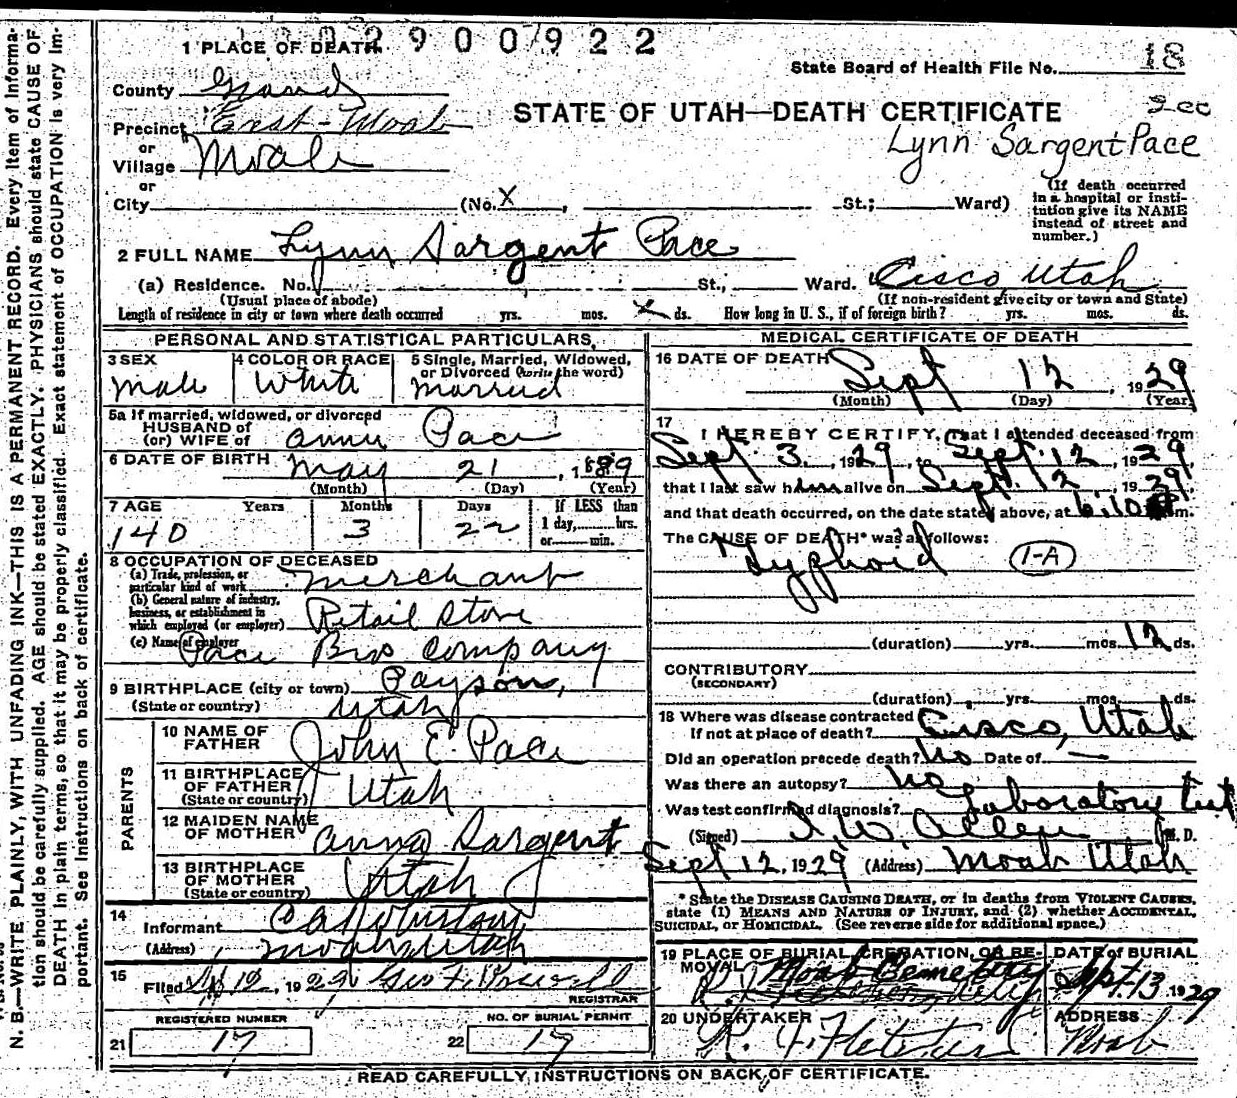 2900922
1 PLACE OF DEATH
State Board of Health File No. 18
County Grand
STATE OF UTAH—DEATH CERTIFICATE
Precinct East-Moab
Lynn Sargent Pace
or
Village Moab
or
City (No. X , St.; Ward)
(If death occurred
in a hospital or insti-
tution give its NAME
instead of street and
number.)
2 FULL NAME Lynn Sargent Pace
(a) Residence. No. St., Ward. Cisco, Utah
(Usual place of abode) (If non-resident give city or town and State)
Length of residence in city or town where death occurred yrs. mos. X ds. How long in U. S., if of foreign birth? yrs. mos. ds.
PERSONAL AND STATISTICAL PARTICULARS,
3 SEX 4 COLOR OR RACE 5 Single, Married, Widowed,
or Divorced (write the word)
Male White Married
5a If married, widowed, or divorced
HUSBAND of
(or) WIFE of Annie Pace
6 DATE OF BIRTH May 21, 1889
(Month) (Day) (Year)
7 AGE Years Months Days If LESS than
1 day, hrs.
or min.
40 3 22
8 OCCUPATION OF DECEASED
(a) Trade, profession, or
particular kind of work Merchant
(b) General nature of industry,
business, or establishment in
which employed (or employer) Retail Store
(c) Name of employer Pace Bros Company
9 BIRTHPLACE (city or town) Payson,
(State or country) Utah
PARENTS
10 NAME OF
FATHER John E. Pace
11 BIRTHPLACE
OF FATHER
(State or country) Utah
12 MAIDEN NAME
OF MOTHER Anna Sargent
13 BIRTHPLACE
OF MOTHER
(State or country) Utah
14
Informant
(Address) Moab, Utah
15
Filed 1929
REGISTRAR
REGISTERED NUMBER NO. OF BURIAL PERMIT
21 17 22 17
MEDICAL CERTIFICATE OF DEATH
16 DATE OF DEATH Sept 12, 1929
(Month) (Day) (Year)
17
I HEREBY CERTIFY, That I attended deceased from
Sept. 3, 1929, to Sept. 12, 1929,
that I last saw him alive on Sept. 12, 1929,
and that death occurred, on the date stated above, at 6:10 m.
The CAUSE OF DEATH* was as follows:
Typhoid 1-A
(duration) yrs. mos. 12 ds.
CONTRIBUTORY
(SECONDARY)
(duration) yrs. mos. ds.
18 Where was disease contracted
If not at place of death? Cisco, Utah
Did an operation precede death? No Date of —
Was there an autopsy? No
Was test confirmed diagnosis? Laboratory test
(Signed) I. W. Allen M. D.
Sept 12, 1929 (Address) Moab Utah
* State the DISEASE CAUSING DEATH, or in deaths from VIOLENT CAUSES,
state (1) MEANS AND NATURE OF INJURY, and (2) whether ACCIDENTAL,
SUICIDAL, or HOMICIDAL. (See reverse side for additional space.)
19 PLACE OF BURIAL, CREMATION, OR RE-
MOVAL Moab Cemetery
DATE of BURIAL
Sept. 13 1929
20 UNDERTAKER ADDRESS
R. J. Fletcher Moab
READ CAREFULLY INSTRUCTIONS ON BACK OF CERTIFICATE.
N. B.—WRITE PLAINLY, WITH UNFADING INK—THIS IS A PERMANENT RECORD. Every item of informa-
tion should be carefully supplied. AGE should be stated EXACTLY. PHYSICIANS should state CAUSE OF
DEATH in plain terms, so that it may be properly classified. Exact statement of OCCUPATION is very im-
portant. See instructions on back of certificate.